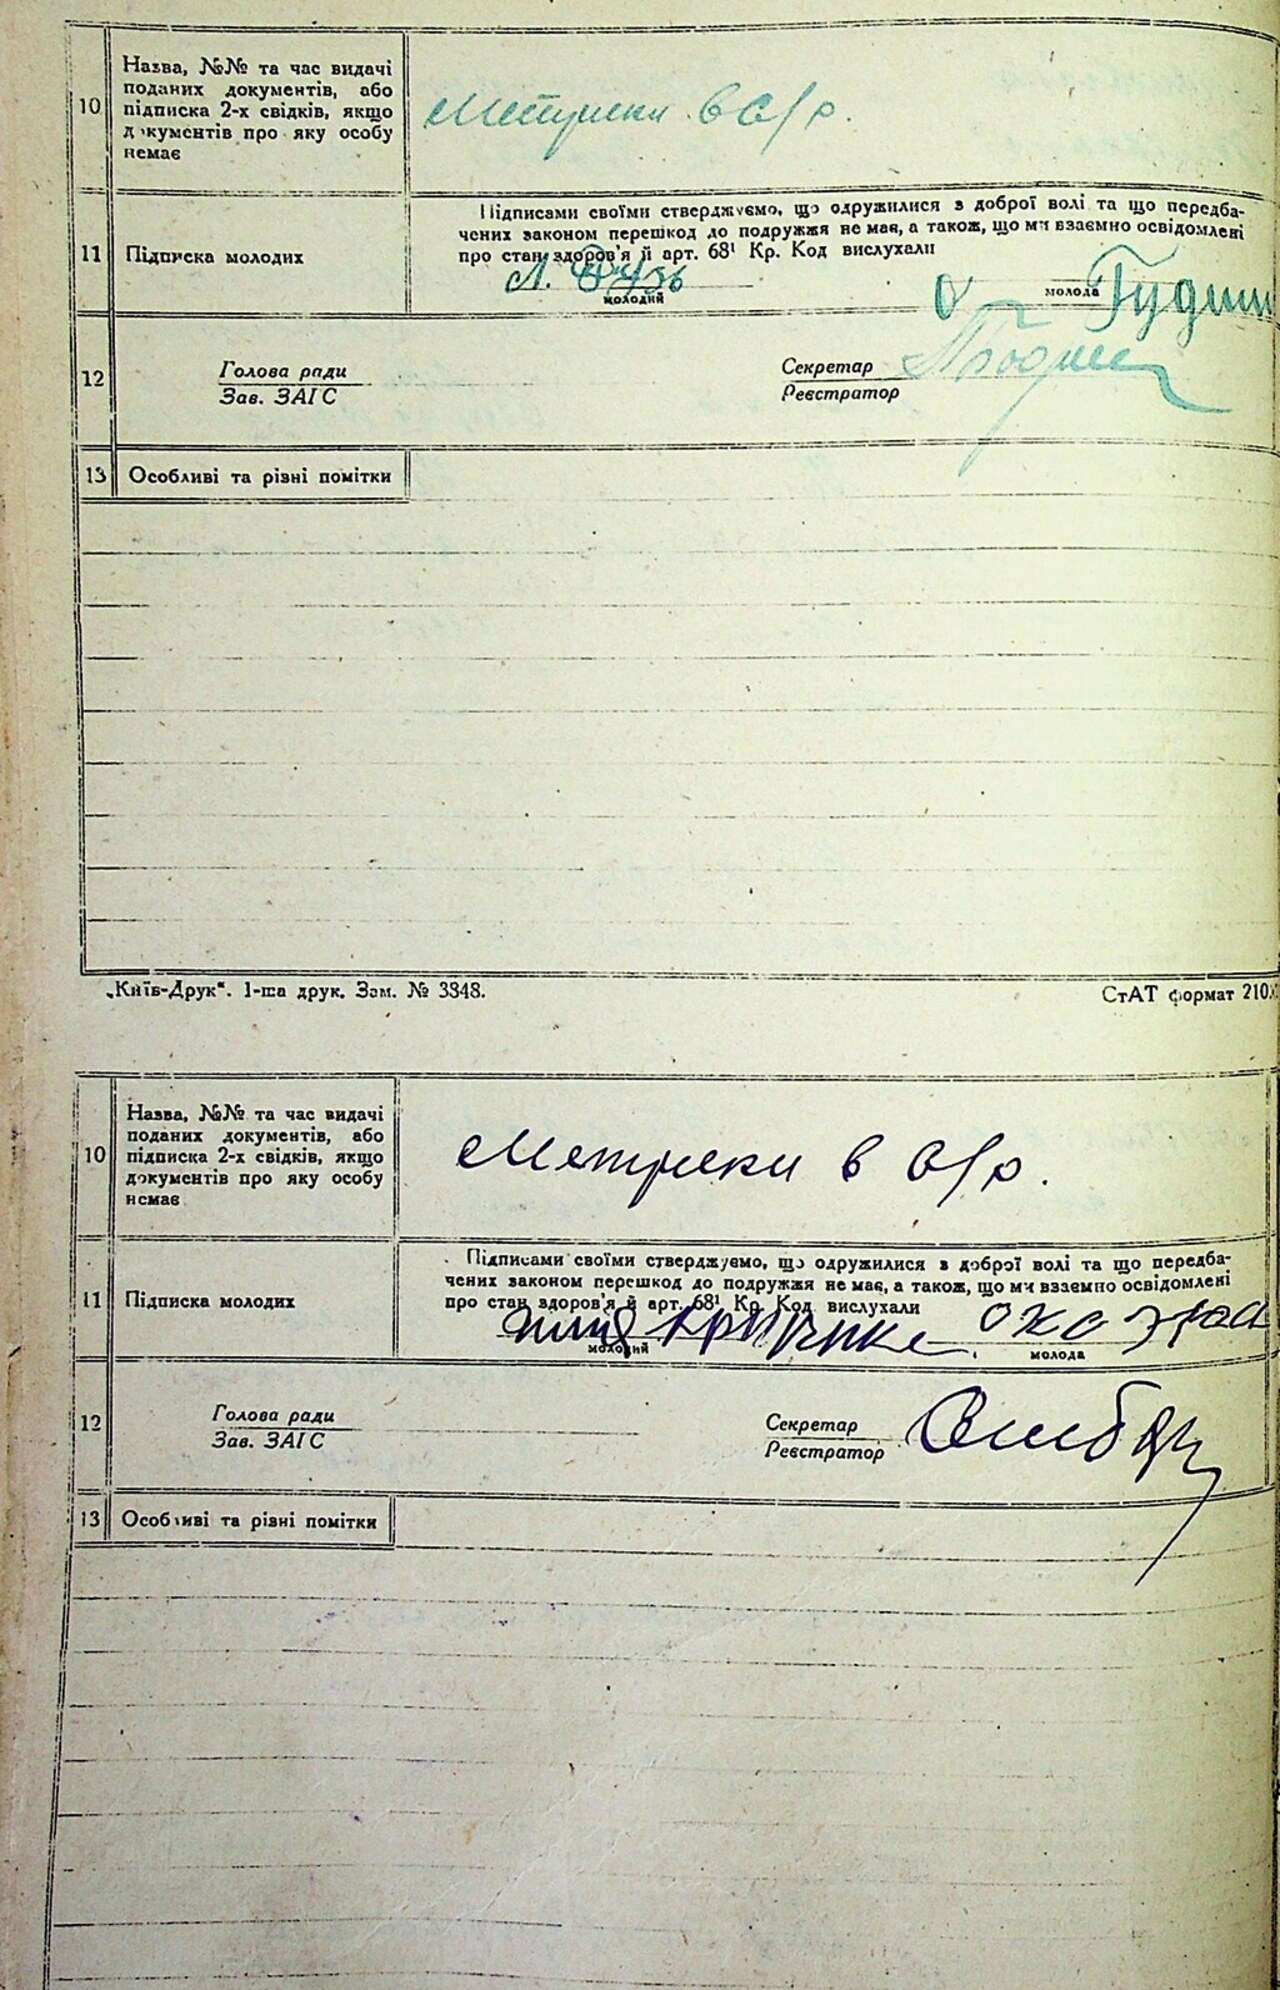 10
Назва, №№ та час видачі
поданих документів, або
підписка 2-х свідків, якщо
документів про яку особу
немає
Метрики в с/р.
11
Підписка молодих
Підписами своїми стверджуємо, що одружилися з доброї волі та що передба-
чених законом перешкод до подружжя не має, а також, що ми взаємно освідомлені
про стан здоров'я й арт. 68¹ Кр. Код вислухали
молодий
молода
12
Голова ради
Зав. ЗАГС
Секретар
Реєстратор
13
Особливі та різні помітки
„Київ-Друк“. 1-ша друк. Зам. № 3348.
СтАТ формат 210
10
Назва, №№ та час видачі
поданих документів, або
підписка 2-х свідків, якщо
документів про яку особу
немає
Метрики в с/р.
11
Підписка молодих
Підписами своїми стверджуємо, що одружилися з доброї волі та що передба-
чених законом перешкод до подружжя не має, а також, що ми взаємно освідомлені
про стан здоров'я й арт. 68¹ Кр. Код вислухали
молодий
молода
12
Голова ради
Зав. ЗАГС
Секретар
Реєстратор
13
Особливі та різні помітки